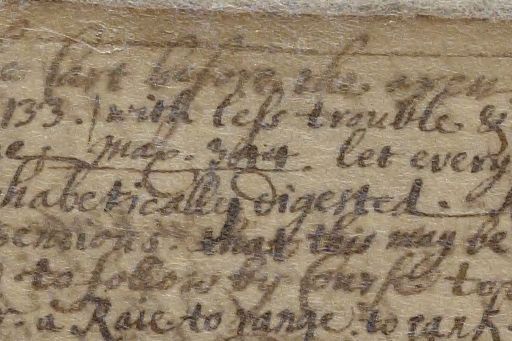 a hart before the
133. with less trouble. &
max. 3044. let every
habetically digested.
pensions. that this may be
to follow by Course to
a Raie to range. to rank.